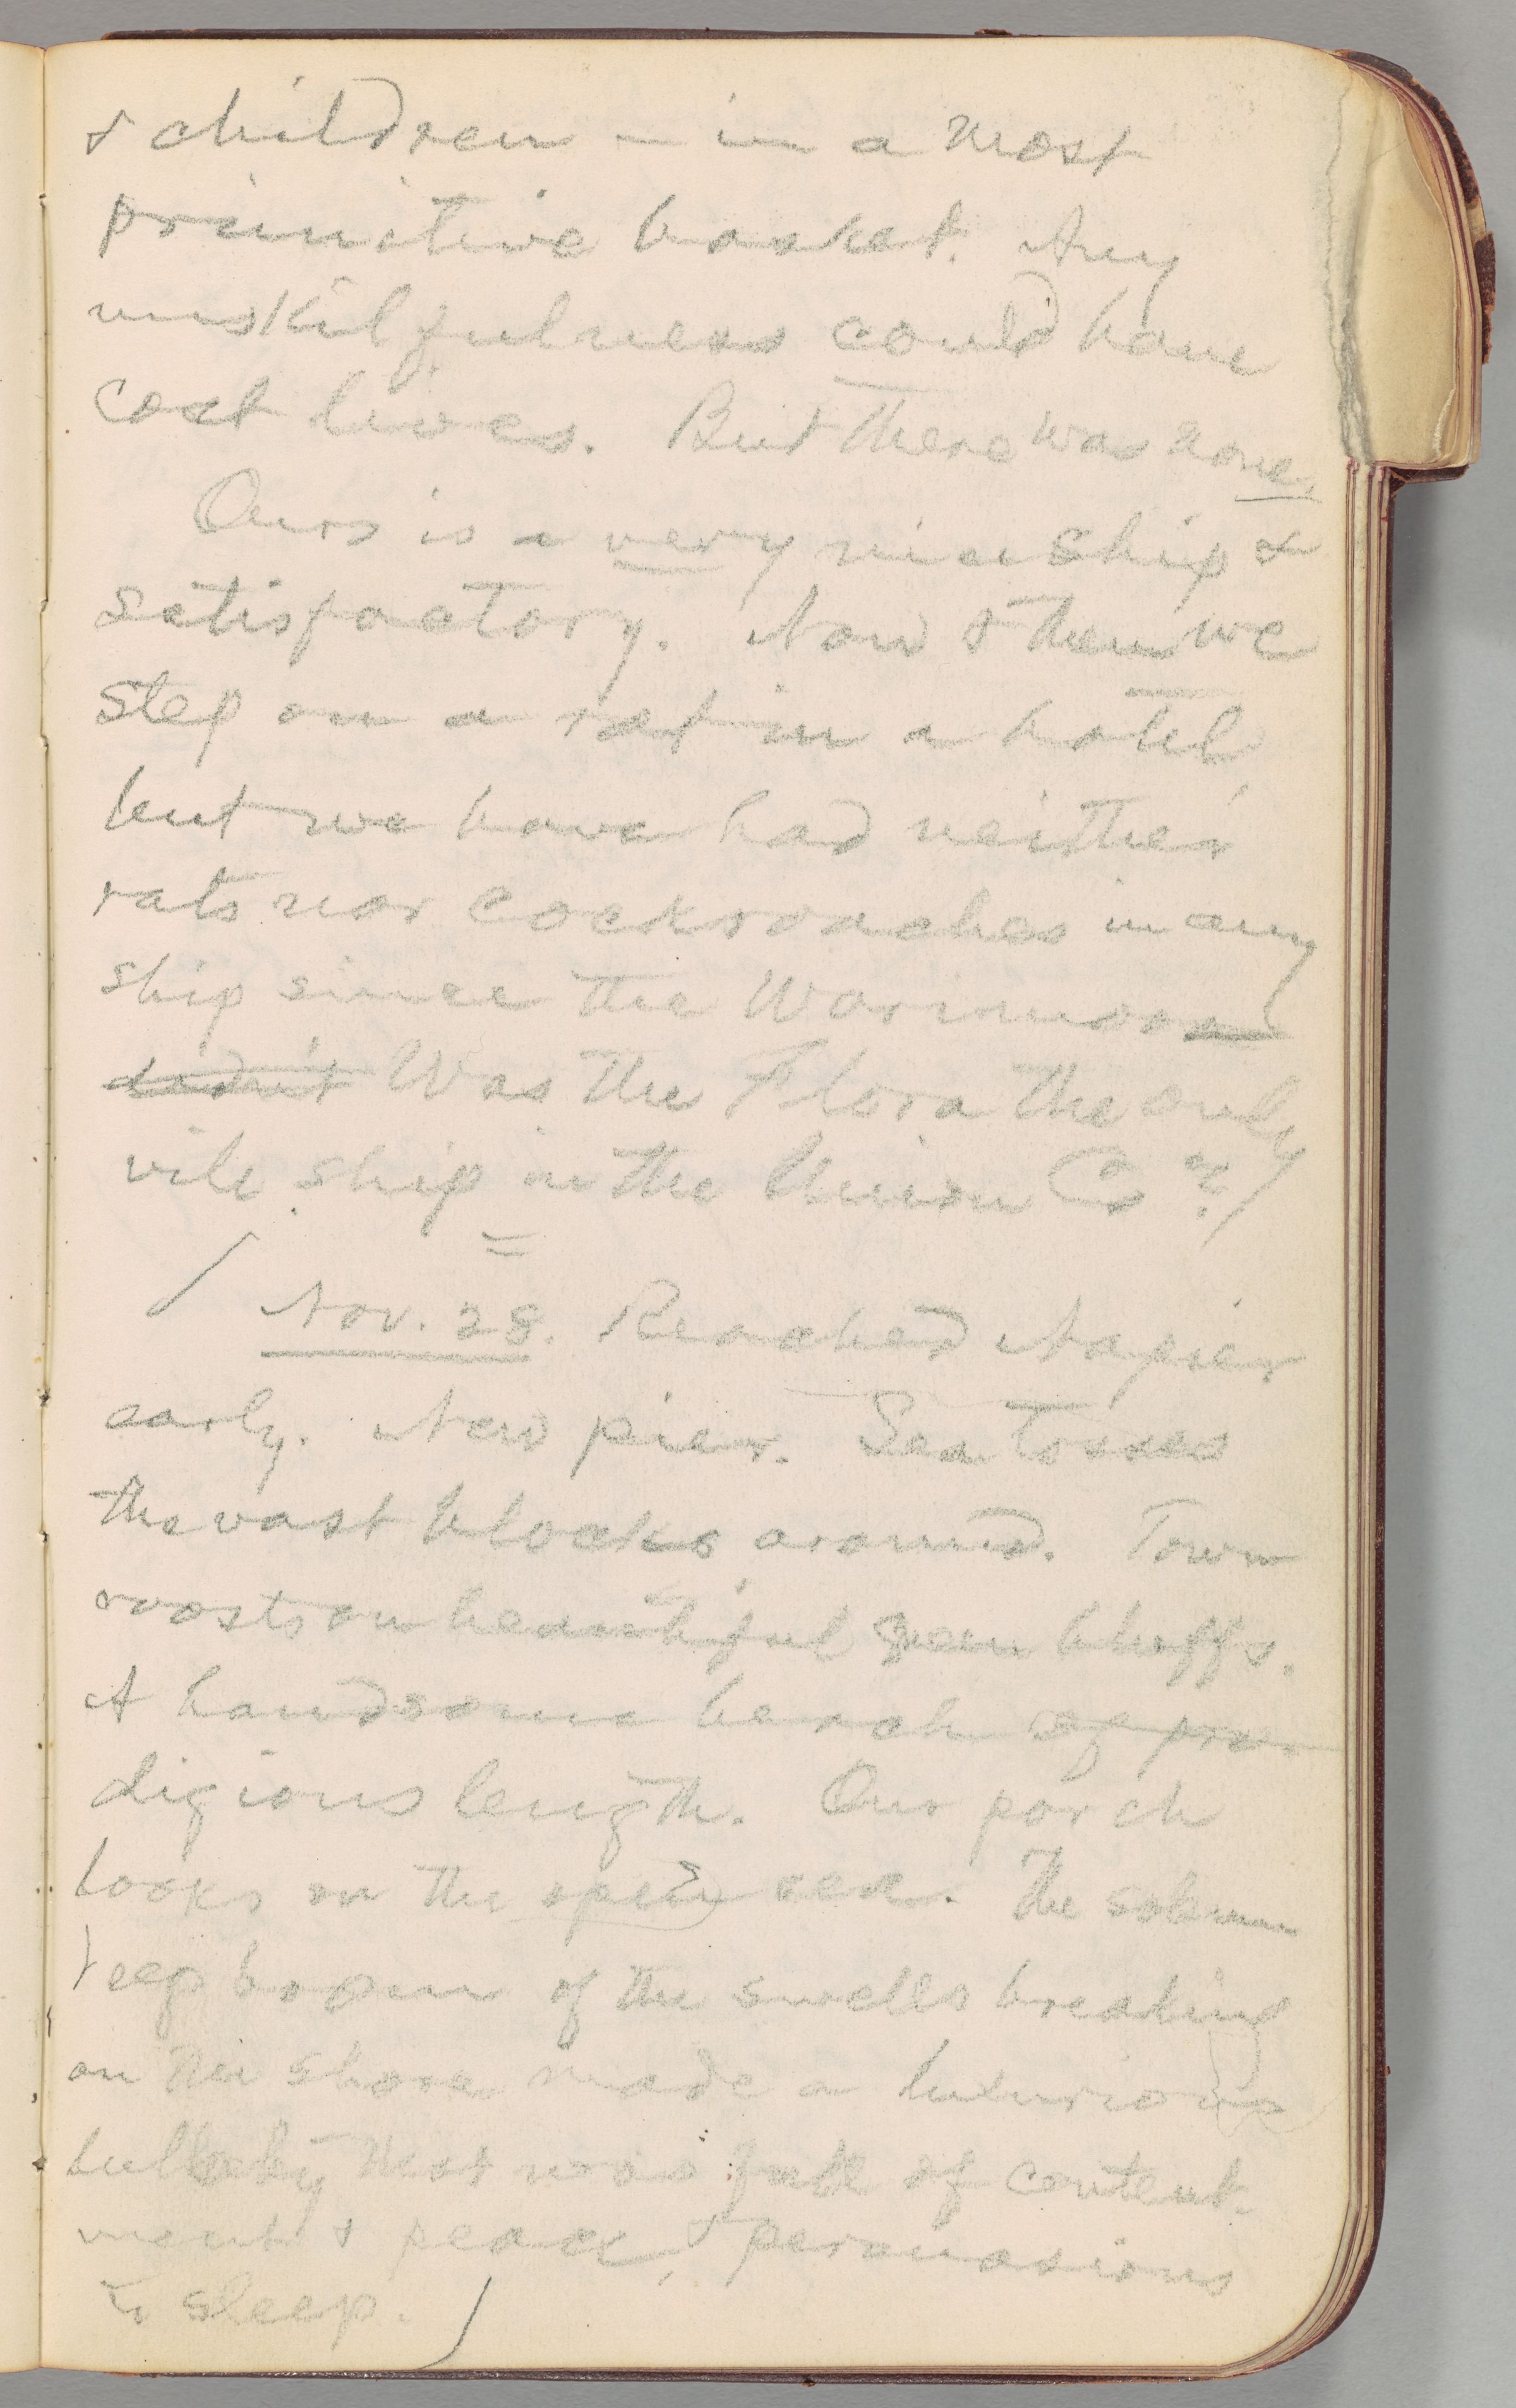 & children – in a most
primitive basket. Any
unskilfulness could have
cost lives. But there was none.
Ours is a very nice ship &
satisfactory. Now & then we
step on a rat in a hotel
but we have had neither
rats nor cockroaches in any
ship since the Warrimoo
didn't Was the Flora the only
vile ship in the Union Co?
=
Nov. 28. Reached Napier
early. New pier. Sea tosses
the vast blocks around. Town
roosts on beautiful green bluffs.
A handsome beach of pro-
digious length. Our porch
looks on the open sea. The solemn
deep boom of the swells breaking
on the shore made a luxurious
lullaby that was full of content-
ment & peace, & persuasions
to sleep.